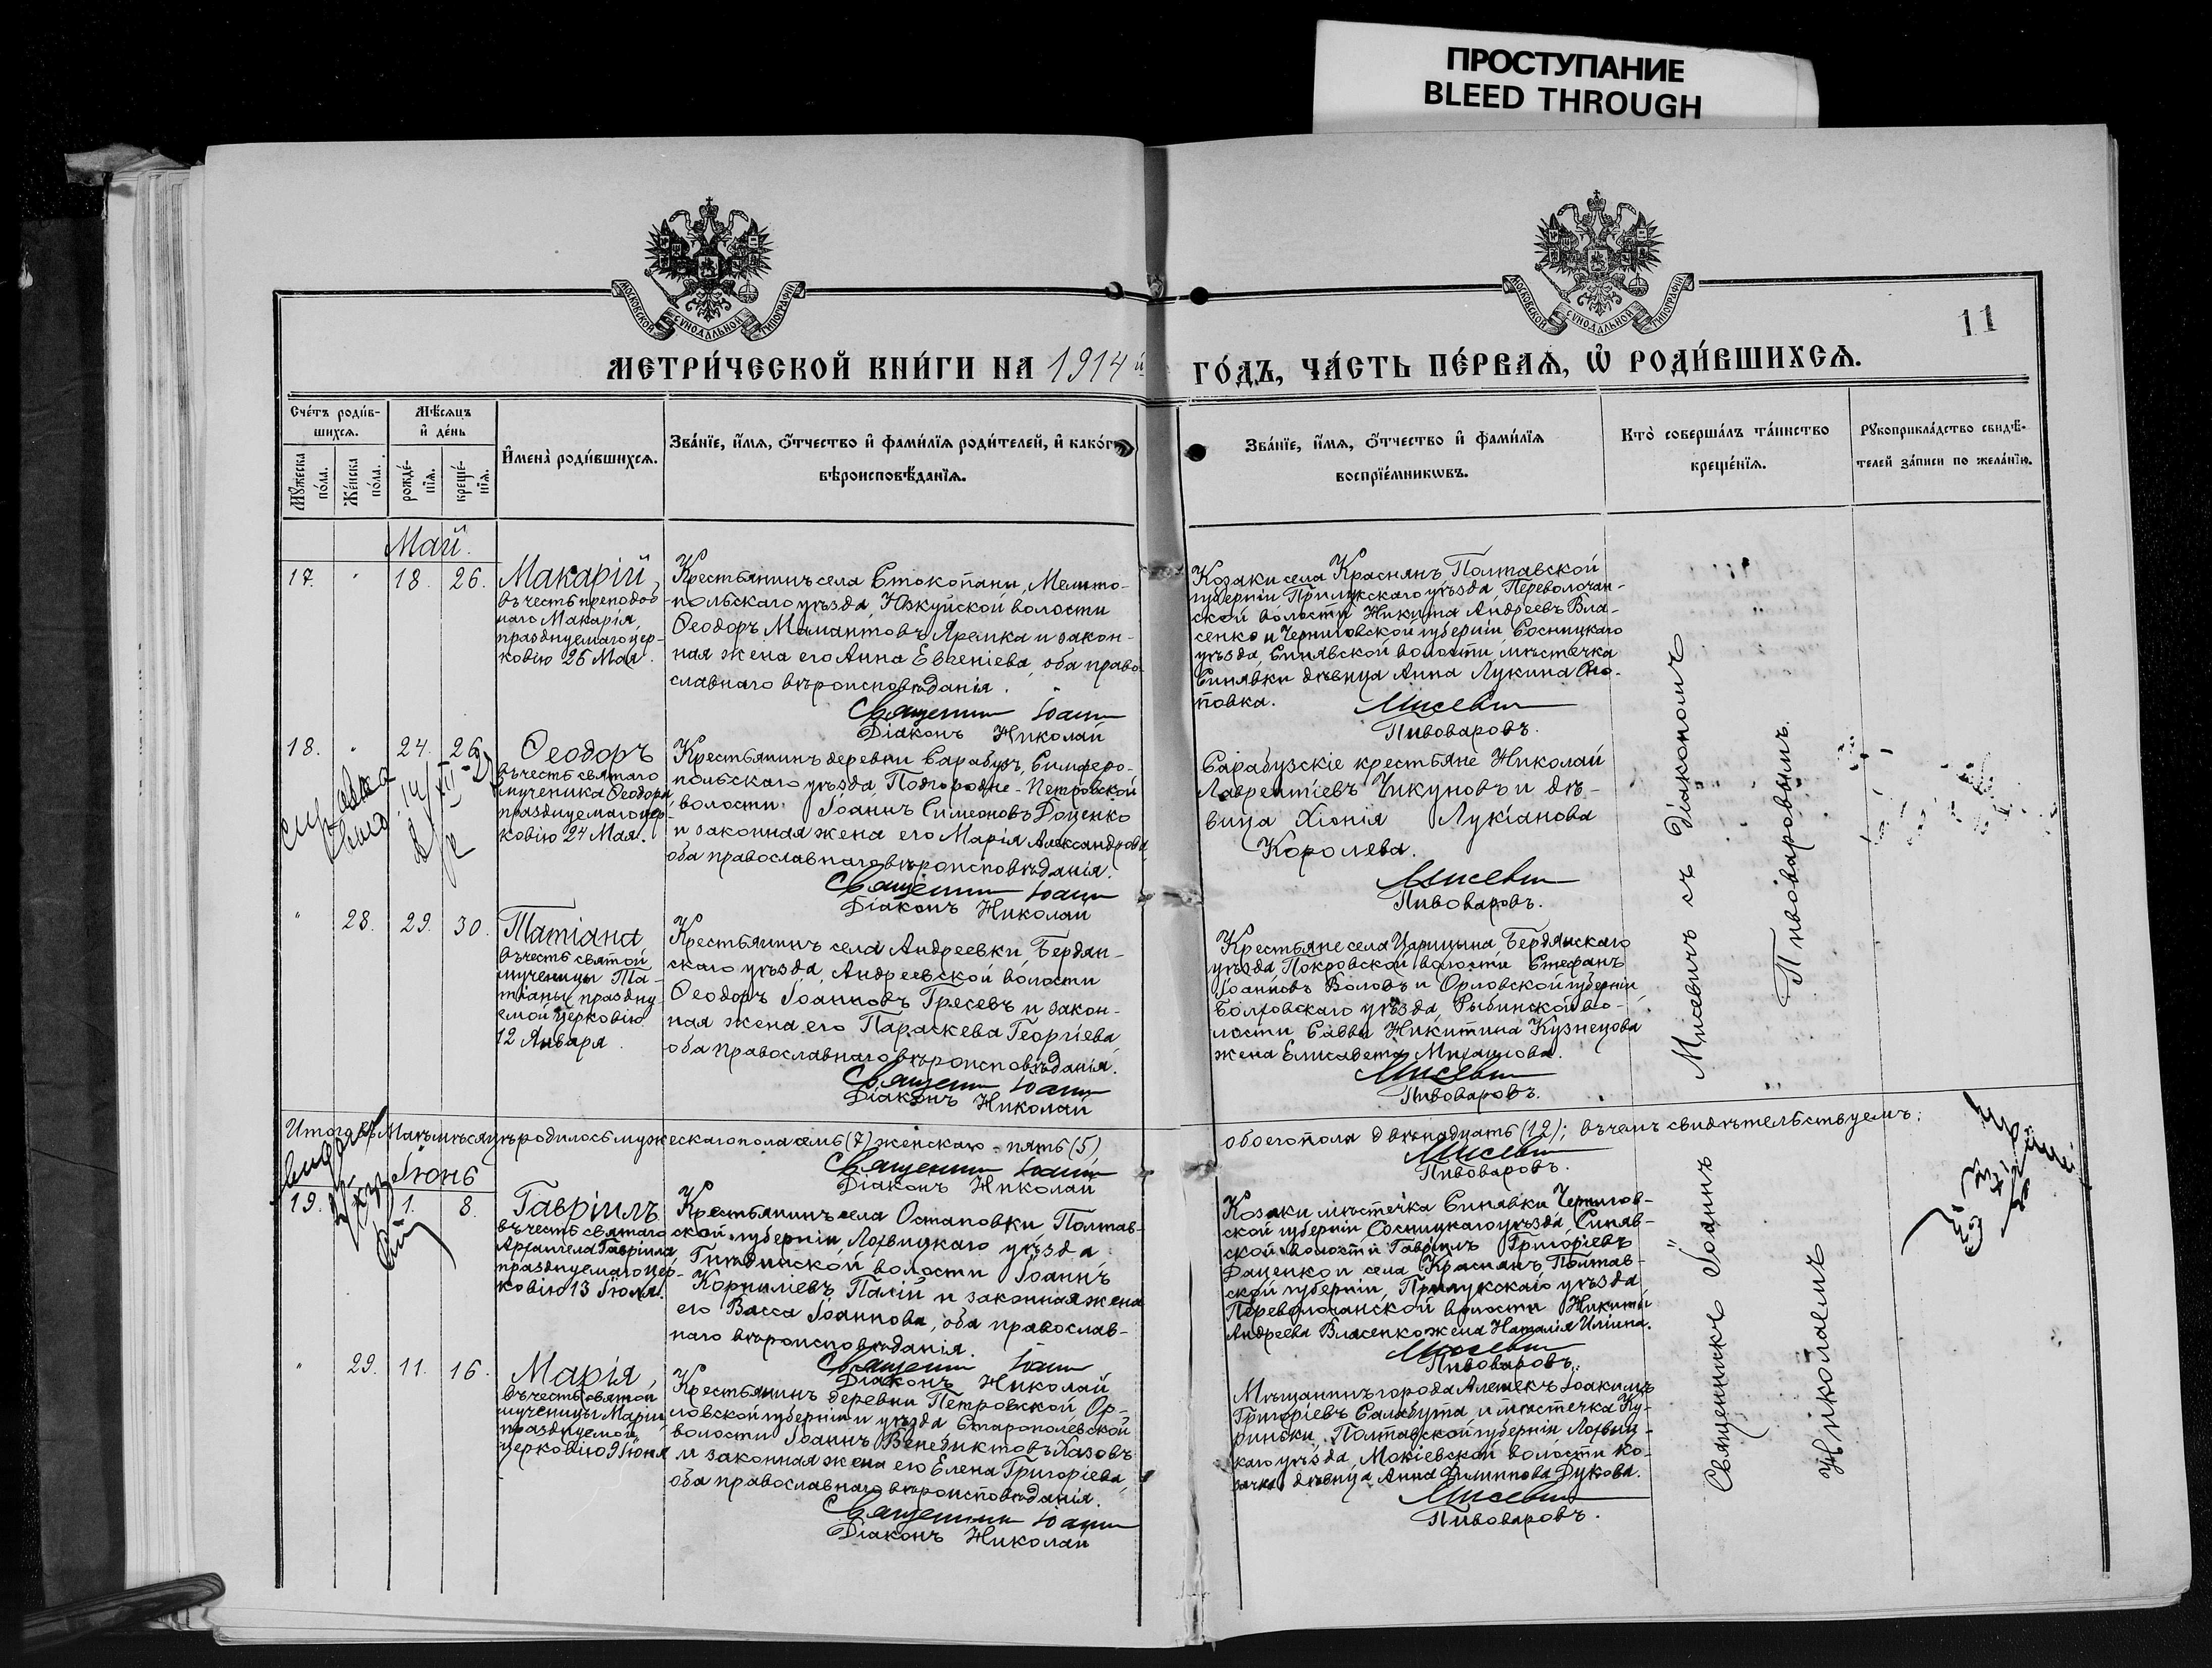 ПРОСТУПАНИЕ
BLEED THROUGH
МОСКОВСКОЙ СѴНОДАЛЬНОЙ ТИПОГРАФІИ
МОСКОВСКОЙ СѴНОДАЛЬНОЙ ТИПОГРАФІИ
11
МЕТРИ́ЧЕСКОЙ КНИ́ГИ НА 1914 й
ГО́ДЪ, ЧА́СТЬ ПЕ́РВАѦ, Ѡ҆ РОДИ́ВШИХСѦ.
Сче́тъ роди́в-
шихсѧ.
Мѣ́сѧцъ
и҆ де́нь
Мꙋ́жеска
по́ла.
Же́нска
по́ла.
рожде́-
нїѧ.
креще́-
нїѧ.
И҆мена̀ роди́вшихсѧ.
Зва́нїе, и҆́мѧ, ѻ҆́тчество и҆ фами́лїѧ роди́телей, и҆ како́гѡ
вѣроисповѣ́данїѧ.
Зва́нїе, и҆́мѧ, ѻ҆́тчество и҆ фами́лїѧ
воспрїе́мникѡвъ.
Кто̀ соверша́лъ та́инство
креще́нїѧ.
Рꙋкоприкла́дство свидѣ́-
телей за́писи по жела́нїю.
Май.
17. " 18. 26.
Макарій,
въ честь преподоб
наго Макарія,
празднуемаго цер-
ковію 26 Мая.
Крестьянинъ села Стокопани, Мелито-
польскаго уѣзда, Юзкуйской волости
Ѳеодоръ Мамантовъ Яремка и закон-
ная жена его Анна Евгеніева, оба право-
славнаго вѣроисповѣданія.
Священникъ Іоаннъ
Діаконъ Николай
Козаки села Краснянъ Полтавской
губерніи Прилукскаго уѣзда, Переволочан-
ской волости Никита Андреевъ Вла-
сенко и Черниговской губерніи Сосницкаго
уѣзда, Синявской волости мѣстечка
Синявки дѣвица Анна Лукина
Мисевичъ
Пивоваровъ.
18. " 24. 26.
Ѳеодоръ
въ честь святаго
мученика Ѳеодора
празднуемаго цер-
ковію 24 Мая.
Крестьянинъ деревни Сарабузъ, Симферо-
польскаго уѣзда, Подгородне-Петровской
волости Іоаннъ Симеоновъ Доценко
и законная жена его Марія Александрова
оба православнаго вѣроисповѣданія.
Священникъ Іоаннъ
Діаконъ Николай
Сарабузскіе крестьяне Николай
Лаврентіевъ Чикуновъ и дѣ-
вица Хіонія Лукіанова
Королева.
Мисевичъ
Пивоваровъ.
" 28. 29. 30.
Татіана,
въ честь святой
мученицы Та-
тіаны праздну
емой церковію
12 Января.
Крестьянинъ села Андреевки, Бердян-
скаго уѣзда, Андреевской волости
Ѳеодоръ Іоанновъ Гресевъ и закон-
ная жена его Параскева Георгіева
оба православнаго вѣроисповѣданія.
Священникъ Іоаннъ
Діаконъ Николай
Крестьяне села Царицына Бердянскаго
уѣзда, Покровской волости Стефанъ
Іоанновъ Воловъ и Орловской губерніи,
Болховскаго уѣзда, Рыбинской во-
лости Саввы Никитина Кузнецова
жена Елисавета Михаилова.
Мисевичъ
Пивоваровъ.
Итого въ Маѣ мѣсяцѣ родилось мужескаго пола семь (7) женскаго - пять (5)
обоего пола двѣнадцать (12); въ чемъ свидѣтельствуемъ:
Священникъ Іоаннъ
Діаконъ Николай
Мисевичъ
Пивоваровъ.
Іюнь
19. 1. 8.
Гавріилъ
въ честь святаго
Архангела Гавріила,
празднуемаго цер-
ковію 13 Іюля.
Крестьянинъ села Остаповки Полтав-
ской губерніи, Лохвицкаго уѣзда
Гнѣдинской волости Іоаннъ
Корниліевъ Палій и законная жена
его Васса Іоаннова, оба православ-
наго вѣроисповѣданія.
Священникъ Іоаннъ
Діаконъ Николай
Козаки мѣстечка Синявки Чернигов-
ской губерніи Сосницкаго уѣзда, Синяв-
ской волости Гавріилъ Григоріевъ
Даценко и села Краснянъ Полтав-
ской губерніи, Прилукскаго уѣзда
Переволочанской волости Никиты
Андреева Власенко жена Наталія Иліина.
Мисевичъ
Пивоваровъ.
" 29. 11. 16.
Марія,
въ честь святой
мученицы Маріи,
празднуемой
церковію 9 Іюня
Крестьянинъ деревни Петровской Ор-
ловской губерніи и уѣзда Старополевской
волости Іоаннъ Венедиктовъ Лазовъ
и законная жена его Елена Григоріева,
оба православнаго вѣроисповѣданія.
Священникъ Іоаннъ
Діаконъ Николай
Мѣщанинъ города Алешекъ Іоакимъ
Григоріевъ Саликбута и мѣстечка Ку-
риньки Полтавской губерніи Лохвиц-
каго уѣзда, Мокіевской волости ко-
зачка дѣвица Анна Филиппова Дукова.
Мисевичъ
Пивоваровъ.
Священникъ Іоаннъ Мисевичъ съ Діакономъ
Николаемъ Пивоваровымъ.